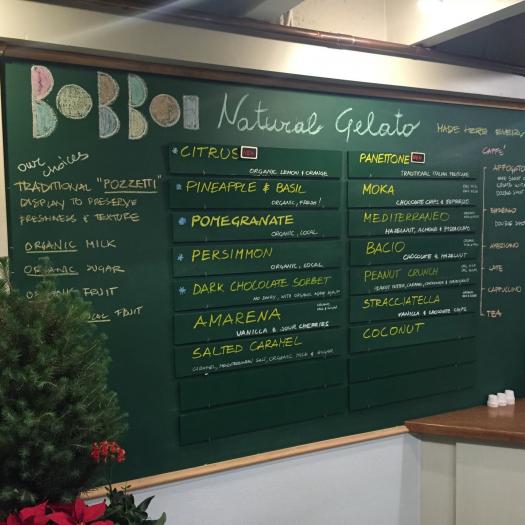 BOBBOI Natural Gelato MADE HERE
our choices
TRADITIONAL "POZZETTI"
DISPLAY TO PRESERVE
FRESHNESS & TEXTURE
ORGANIC MILK
ORGANIC SUGAR
FRUIT
FRUIT
* CITRUS
ORGANIC LEMON & ORANGE
* PINEAPPLE & BASIL
ORGANIC, FRESH!
* POMEGRANATE
ORGANIC, LOCAL
* PERSIMMON
ORGANIC, LOCAL
* DARK CHOCOLATE SORBET
NO DAIRY, WITH ORGANIC AGAVE
AMARENA
VANILLA & SOUR CHERRIES
SALTED CARAMEL
CARAMEL, MEDITERRANEAN SALT, ORGANIC MILK & SUGAR
PANETTONE
TRADITIONAL ITALIAN FRUITCAKE
MOKA
CHOCOLATE CHIPS & ESPRESSO
MEDITERRANEO
HAZELNUT, ALMOND & PISTACHIO
BACIO
CHOCOLATE & HAZELNUT
PEANUT CRUNCH
STRACCIATELLA
VANILLA & CHOCOLATE CHIPS
COCONUT
CAFFE'
AFFOGATO
ESPRESSO
AMERICANO
LATTE
CAPPUCCINO
TEA